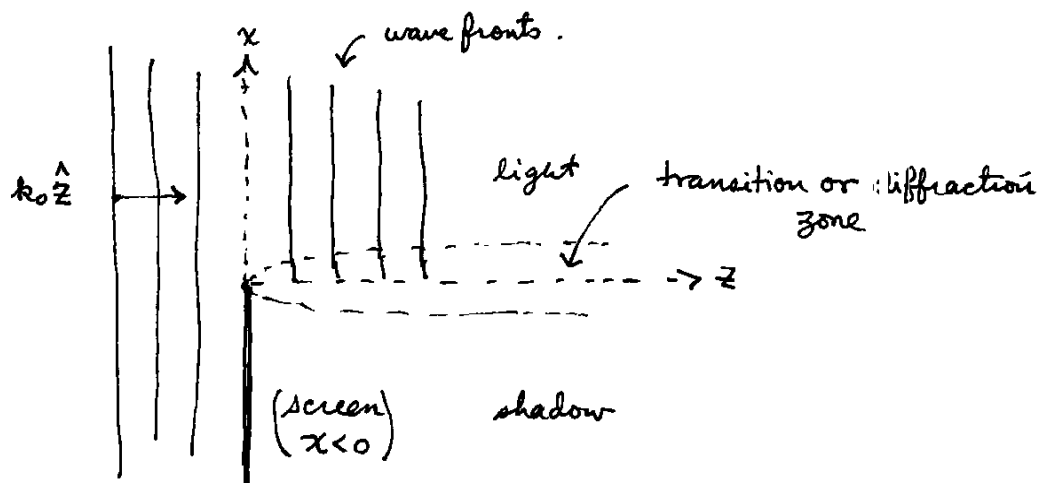 x
wave fronts.
k₀ẑ
light
transition or diffraction
zone
z
(screen
x<0)
shadow